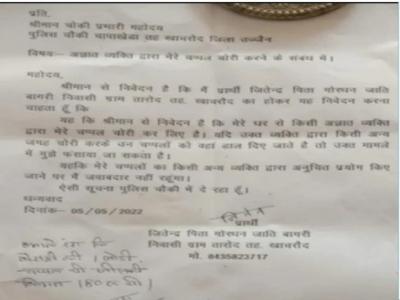 प्रति,
श्रीमान चौकी प्रभारी महोदय
पुलिस चौकी चापाखेडा तह खाचरोद जिला उज्जैन
विषय– अज्ञात व्यक्ति द्वारा मेरे चप्पल चोरी करने के संबंध में।
महोदय,
श्रीमान से निवेदन है कि मैं प्रार्थी जितेन्द्र पिता गोरधन जाति
बागरी निवासी ग्राम तारोद तह. खाचरोद का होकर यह निवेदन करना
चाहता हूँ कि
यह कि श्रीमान से निवेदन है कि मेरे घर से किसी अज्ञात व्यक्ति
द्वारा मेरे चप्पल चोरी कर लिए है। यदि उक्त व्यक्ति द्वारा किसी अन्य
जगह चोरी करके उन चप्पलों को वहां डाल दिए जाते है तो उक्त मामले
में मुझे फसाया जा सकता है।
यहकि मेरे चप्पलों का किसी अन्य व्यक्ति द्वारा अनुचित प्रयोग किए
जाने पर मैं जवाबदार नहीं रहूंगा।
ऐसी सूचना पुलिस चौकी में दे रहा हूँ।
धन्यवाद
दिनांक– 05/05/2022
प्रार्थी
जितेन्द्र पिता गोरधन जाति बागरी
निवासी ग्राम तारोद तह. खाचरौद
मो. 8435823717